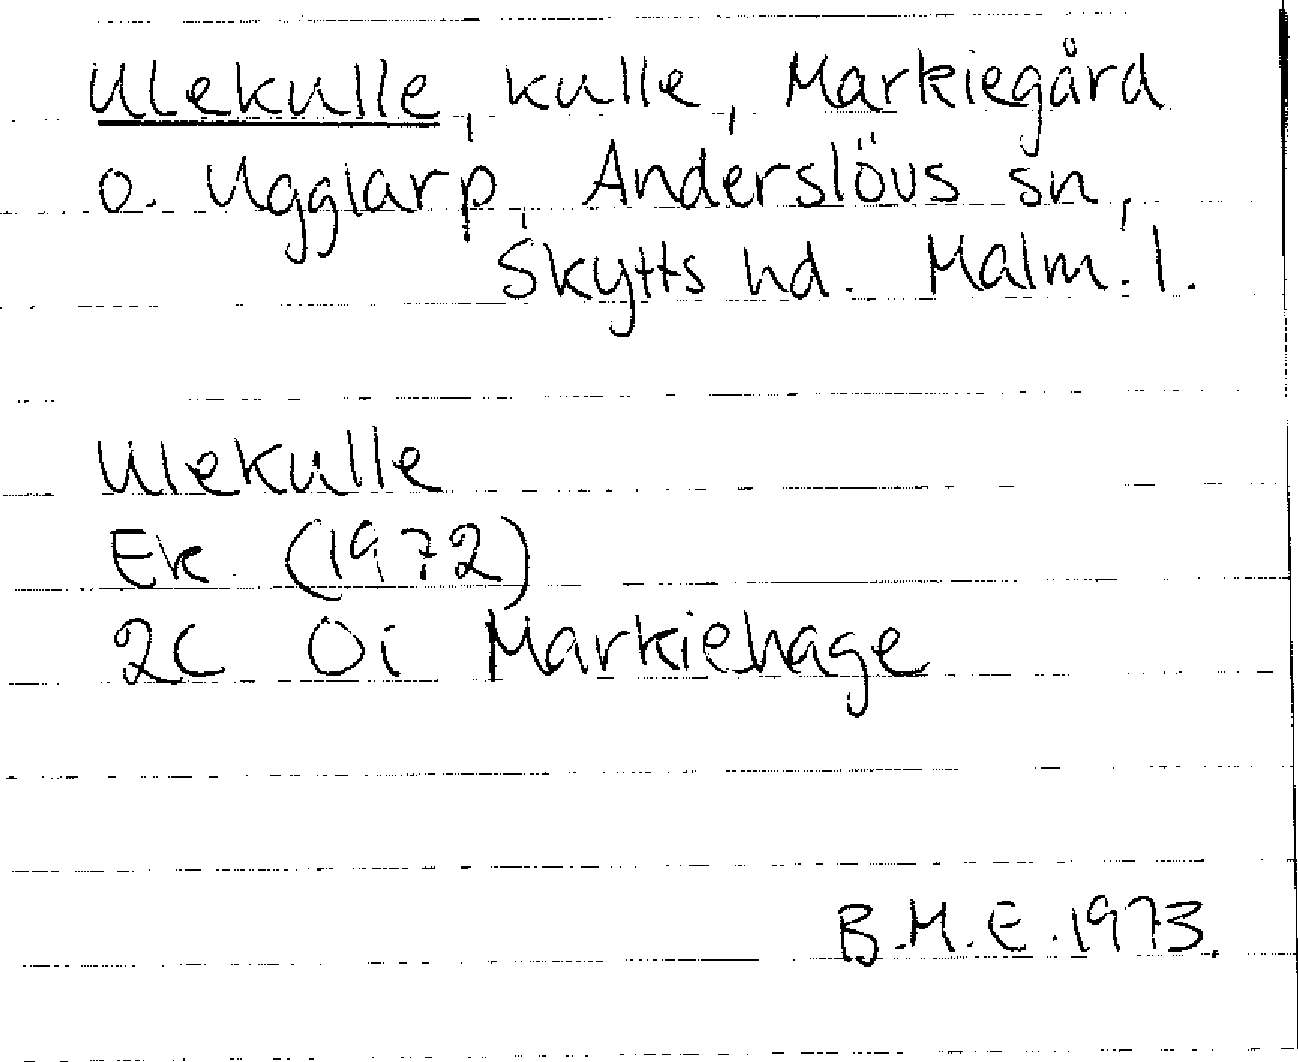 Ulekulle, kulle, Markiegård
o. Ugglarp, Anderslövs sn,
Skytts hd. Malm. l.
Ulekulle
Ek (1972)
2C Oi Markiehage
B.M.E. 1973.